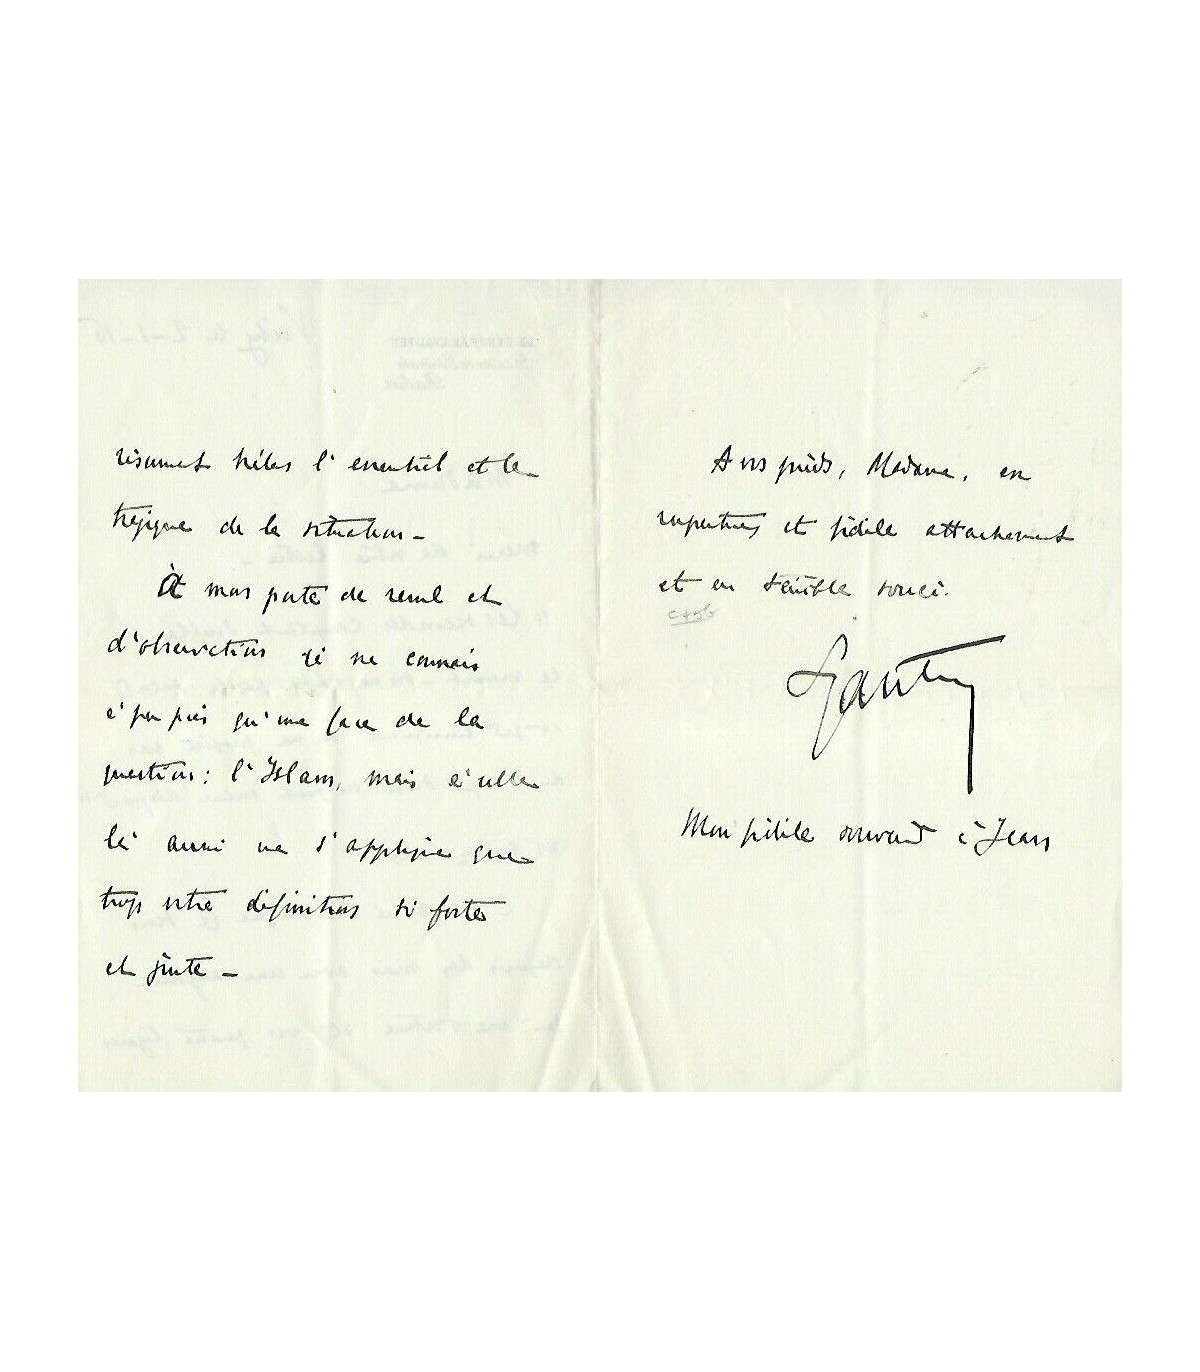 résument hélas l'essentiel et le
tragique de la situation –
À mon poste de recul et
d'observation je ne connais
à peu près qu'une face de la
question : l'Islam, mais à celle
là aussi ne s'applique que
trop votre définition si forte
et juste –
A vos pieds, Madame, en
respectueux et fidèle attachement
et en terrible souci.
Lyautey
Mon fidèle souvenir à Jean